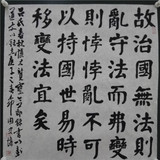 故治國無法則
亂守法而弗變
則悖悖亂不可
以持國世易時
移變法宜矣
呂氏春秋